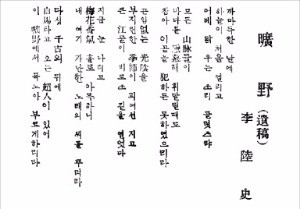 曠野 (遺稿)
李陸史
까마득한 날에
하늘이 처음 열리고
어데 닭 우는 소리 들렷스랴
모든 山脈들이
바다를 戀慕해 휘달릴때도
참아 이곧을 犯하든 못하였으리라
끈임없는 光陰을
부지런한 季節이 피여선 지고
큰 江물이 비로소 길을 열었다
지금 눈 나리고
梅花香氣 홀로 아득하니
내 여기 가난한 노래의 씨를 뿌려라
다시 千古의 뒤에
白馬타고 오는 超人이 있어
이 曠野에서 목노아 부르게하리라